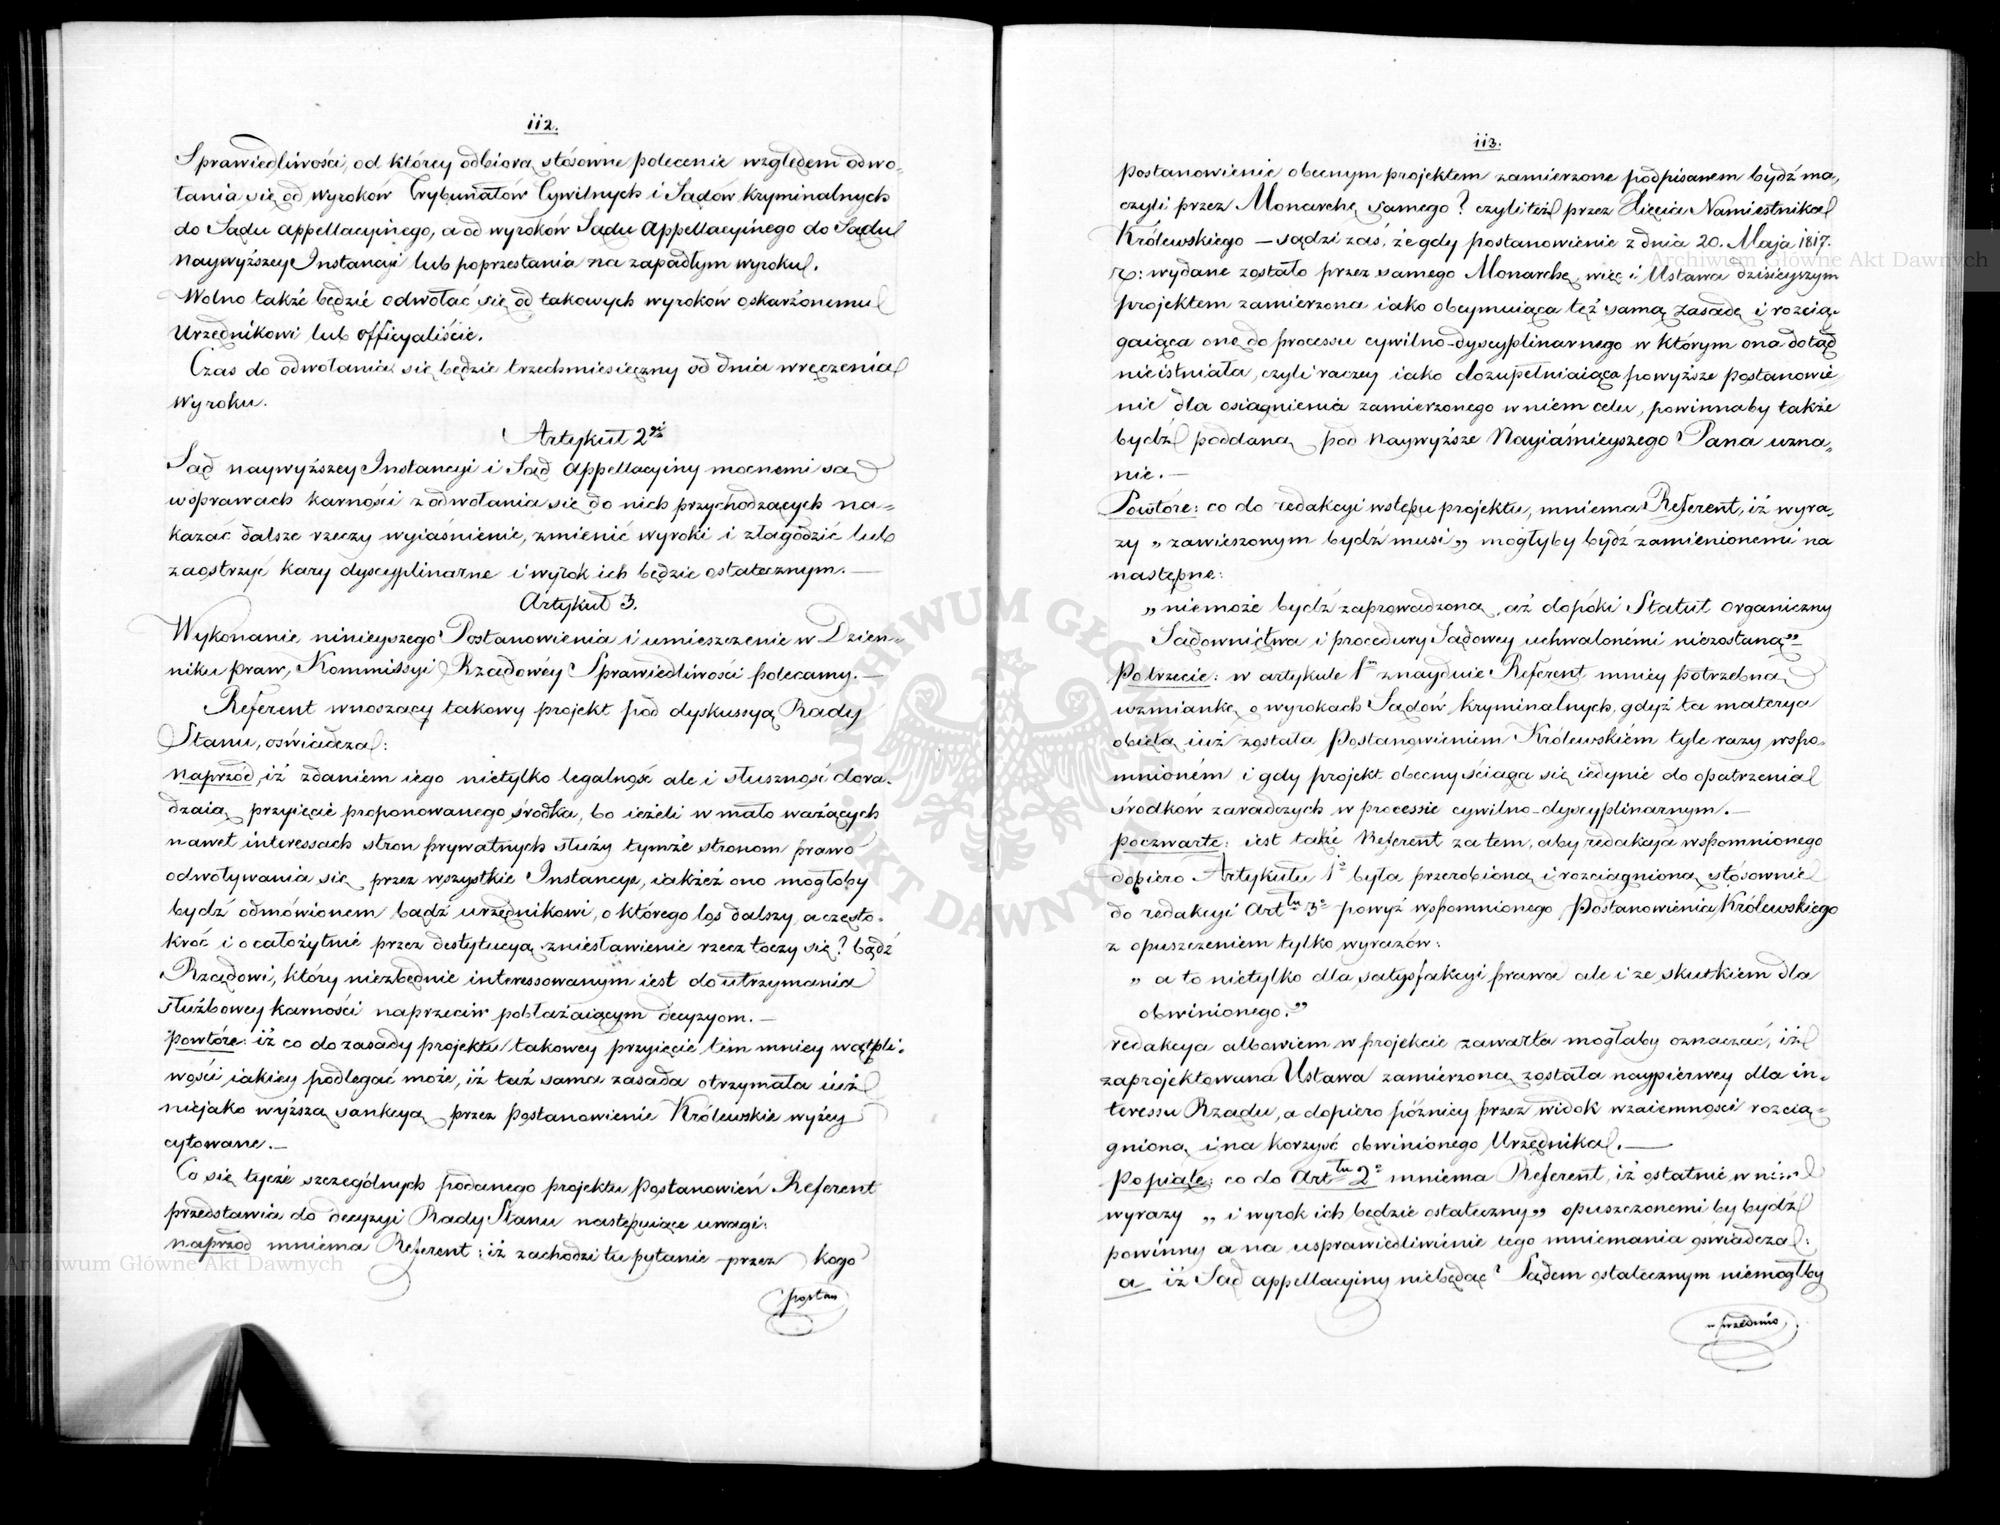 112.
Sprawiedliwości, od którey odbiorą stósowne polecenie względem odwo-
łania się od wyroków Trybunałów Cywilnych i Sądów Kryminalnych
do Sądu Appellacyinego, a od wyroków Sądu Appellacyinego do Sądu
Naywyższey Instancyi lub poprzestania na zapadłym wyroku.
Wolno także będzie odwołać się od takowych wyroków oskarżonemu
Urzędnikowi lub officyaliście.
Czas do odwołania się będzie trzechmiesięczny od dnia wręczenia
wyroku.
Artykuł 2gi
Sąd naywyższey Instancyi i Sąd Appellacyiny mocnemi są
w sprawach karności z odwołania się do nich przychodzących na-
kazać dalsze rzeczy wyiaśnienie, zmienić wyroki i złagodzić lub
zaostrzyć kary dyscyplinarne i wyrok ich będzie ostatecznym. —
Artykuł 3.
Wykonanie ninieyszego Postanowienia i umieszczenie w Dzien-
niku praw, Kommissyi Rządowéy Sprawiedliwości polecamy. —
Referent wnoszący takowy projekt pod dyskussyą Rady
Stanu, oświadcza:
naprzód, iż zdaniem iego nietylko legalność ale i słuszność dora-
dzaią przyięcie proponowanego środka, bo ieżeli w mało ważących
nawet interessach stron prywatnych służy tymże stronom prawo
odwoływania się przez wszystkie Instancye, iakżeż ono mogłoby
bydź odmówionem bądź urzędnikowi, o którego los dalszy, a często-
kroć i o całożytnie przez destytucyą zniesławienie rzecz toczy się? bądź
Rządowi, który niezbędnie interessowanym iest do utrzymania
służbowey karności naprzeciw pobłażaiącym decyzyom. —
powtóre: iż co do zasady projektu takowey przyięcie tém mniey wątpli-
wości iakiey podlegać może, iż taż sama zasada otrzymała iuż
nieiako wyższą sankcyą przez Postanowienie Królewskie wyżey
cytowane. —
Co się tycze szczególnych podanego projektu Postanowień Referent
przedstawia do decyzyi Rady Stanu następuiące uwagi:
naprzód mniema Referent: iż zachodzi tu pytanie przez kogo
postan
113.
Postanowienie obecnym projektem zamierzone podpisanem bydź ma,
czyli przez Monarchę samego? czyli też przez Xięcia Namiestnika
Królewskiego — sądzi zaś, że gdy postanowienie z dnia 20. Maja 1817.
r: wydane zostało przez samego Monarchę, więc i Ustawa dzisieyszym
projektem zamierzona iako obeymuiąca też samą zasadę i rozcią-
gaiąca onę do processu cywilno-dyscyplinarnego w którym ona dotąd
nieistniała, czyli raczey iako dozupełniaiąca powyższe postanowie
nie dla osiągnienia zamierzonego w niem celu, powinnaby także
bydź poddaną pod Naywyższe Nayiaśnieyszego Pana uzna-
nie. —
Powtóre: co do redakcyi wstępu projektu, mniema Referent, iż wyra-
zy „zawieszonym bydź musi„ mogłyby bydź zamienionemi na
następne:
„niemoże bydź zaprowadzoną, aż dopóki Statut organiczny
Sądownictwa i procedury Sądowey uchwalonémi niezostaną” —
Potrzecie: w artykule 1m znayduie Referent mniey potrzebną
wzmiankę o wyrokach Sądów kryminalnych, gdyż ta materya
obiętą iuż została Postanowieniem Królewskiém tyle razy wspo-
mnioném i gdy projekt obecny ściąga się iedynie do opatrzenia
środków zaradczych w processie cywilno-dyscyplinarnym. —
poczwarte: iest także Referent za tem, aby redakcya wspomnionego
dopiero Artykułu 1o była przerobioną i rozciągnioną stósownie
do redakcyi Arttu 3o powyż wspomnionego Postanowienia Królewskiego
z opuszczeniem tylko wyrazów:
„a to nietylko dla satysfakcyi prawa ale i ze skutkiem dla
obwinionego.”
redakcya albowiem w projekcie zawarta mogłaby oznaczać, iż
zaprojektowana Ustawa zamierzoną została naypierwey dla in-
teressu Rządu, a dopiero późniey przez widok wzaiemności rozcią-
gnioną i na korzyść obwinionego Urzędnika. —
Popiąte: co do Arttu 2o mniema Referent, iż ostatnie w nim
wyrazy „i wyrok ich będzie ostateczny„ opuszczonemi by bydź
powinny a na usprawiedliwienie tego mniemania oświadcza:
a iż Sąd appellacyiny niebędąc Sądem ostatecznym niemógłby
uprzednio,
Archiwum Główne Akt Dawnych
Archiwum Główne Akt Dawnych
ARCHIWUM GŁÓWNE AKT DAWNYCH